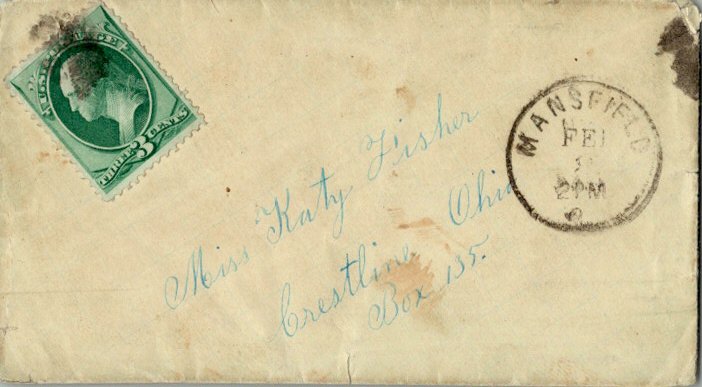 U.S. POSTAGE
THREE 3 CENTS
MANSFIELD
FEB
2PM
O
Miss Katy Fisher
Crestline Ohio
Box 135.